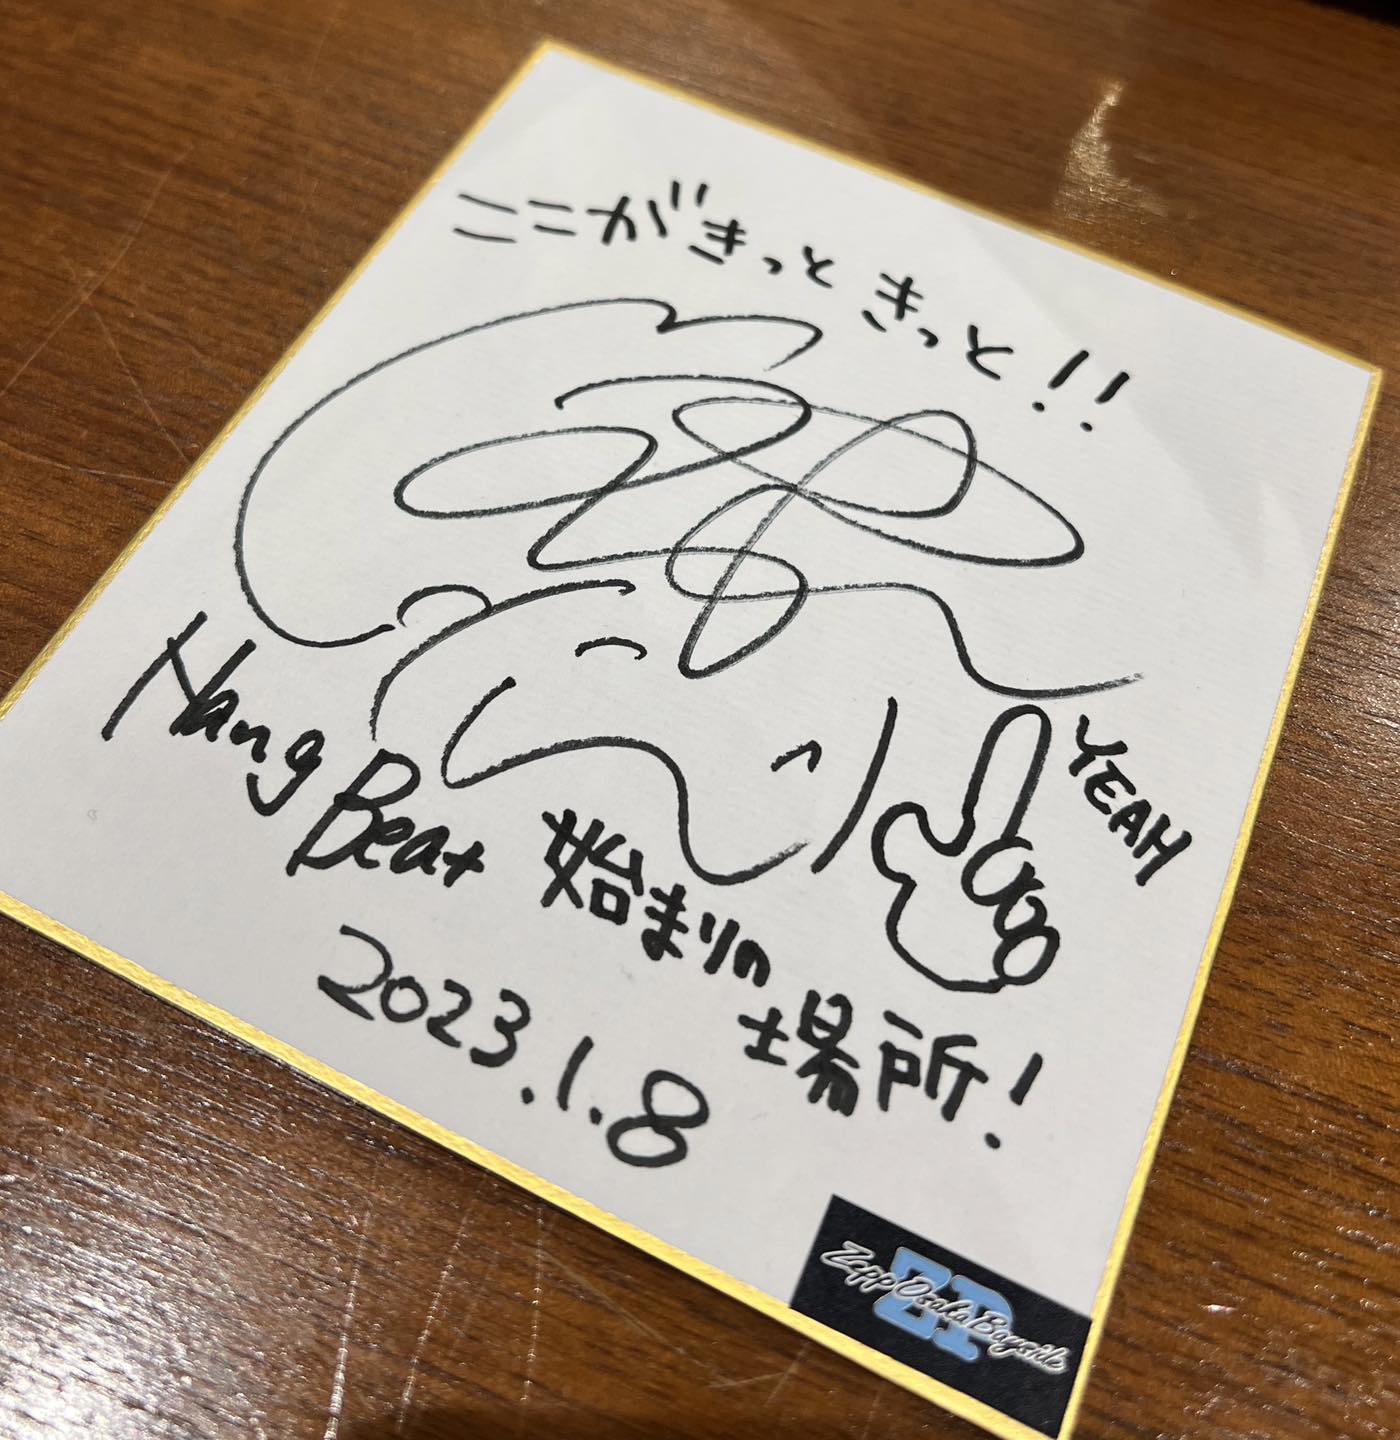 ここがきっときっと!!
YEAH
Nang Beat 始まりの
場所!
2023.1.8
Zepp Osaka Bayside